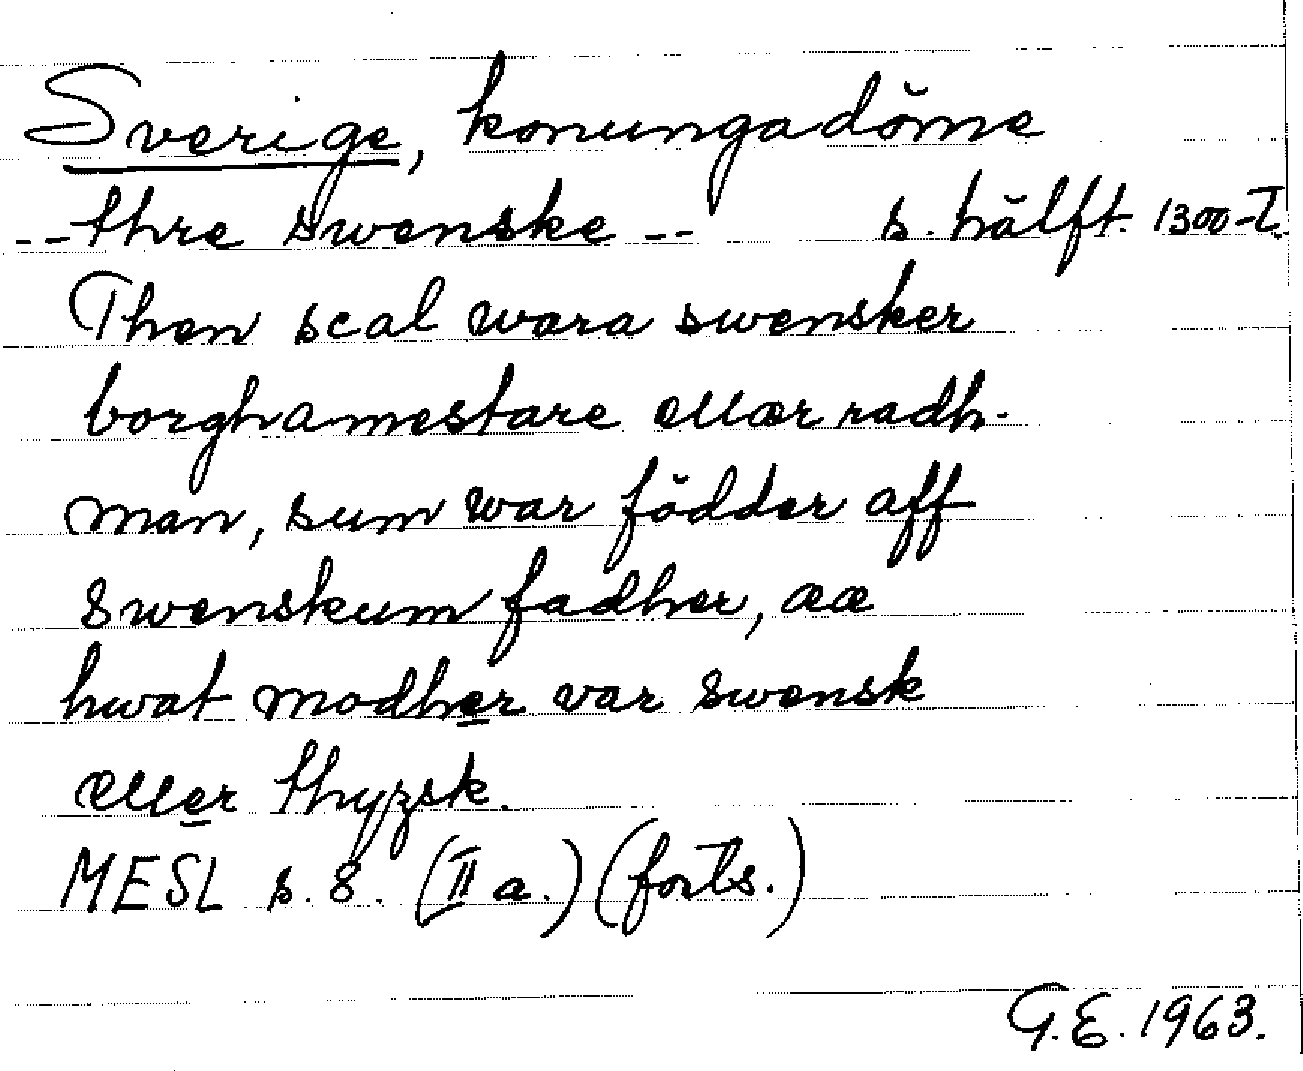 Sverige, konungadöme
-- thre swenske -- s. hälft. 1300-T.
Then scal wara swensker
borghamestare ellær radh-
man, sum war födder aff
swenskum fadher, ææ
hwat modher var swensk
æller thyzsk.
MESL s. 8. (II a.) (forts.)
G.E. 1963.